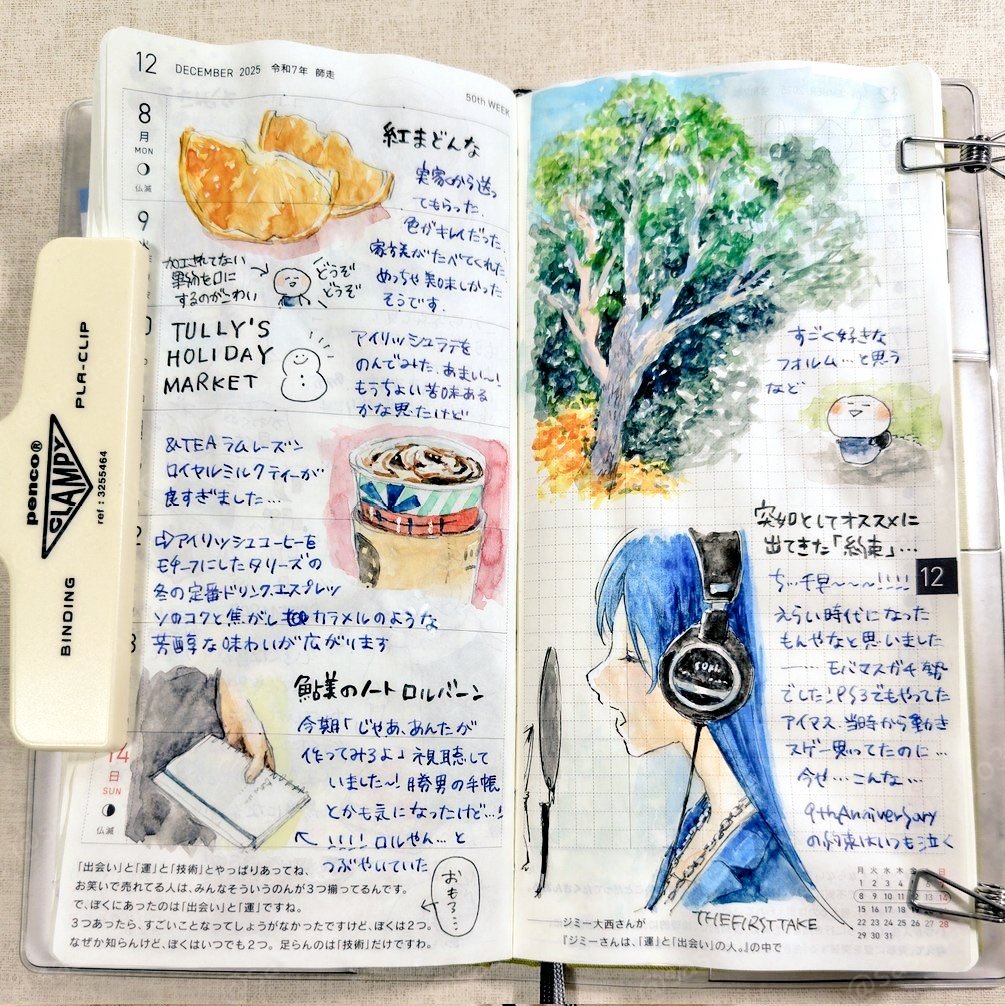 12 DECEMBER 2025 令和7年 師走
50th WEEK
8
月
MON
仏滅
紅まどんな
実家から送っ
てもらった.
色がキレイだった.
家族がたべてくれた
めっちゃ美味しかった
そうです.
9
火
加工されてない
果物を口に
するのがこわい
どうぞ
どうぞ
TULLY'S
HOLIDAY
MARKET
アイリッシュラテを
のんでみた.あまい〜!
もうちょい苦味ある
かな思たけど
&TEA ラムレーズン
ロイヤルミルクティーが
良すぎました…
⇨アイリッシュコーヒーを
モチーフにしたタリーズの
冬の定番ドリンク.エスプレッ
ソのコクと焦がしカラメルのような
芳醇な味わいが広がります
鮎美のノート ロルバーン
今期「じゃあ、あんたが
作ってみろよ」視聴して
いました〜!勝男の手帳
とかも気になったけど…!
!!!!ロルやん…と
つぶやいていた
14
日
SUN
仏滅
「出会い」と「運」と「技術」とやっぱりあってね、
お笑いで売れてる人は、みんなそういうのんが3つ揃ってるんです。
で、ぼくにあったのは「出会い」と「運」ですね。
3つあったら、すごいことなってしょうがなかったですけど、ぼくは2つ。
なぜか知らんけど、ぼくはいつでも2つ。足らんのは「技術」だけですわ。
おもろ…
penco®
CLAMPY
ref : 3255464
PLA-CLIP
BINDING
すごく好きな
フォルム…と思う
など
突如としてオススメに
出てきた「約束」…
ちっ千早〜〜〜!!!!
12
えらい時代になった
もんやなと思いました
モバマスガチ勢
でした!PS3でもやってた
アイマス.当時から動き
スゲー思ってたのに…
今せ…こんな…
9thAnniversary
の約束はいつも泣く
SONY
THE FIRST TAKE
月 火 水 木 金 土 日
1 2 3 4 5 6 7
8 9 10 11 12 13 14
15 16 17 18 19 20 21
22 23 24 25 26 27 28
29 30 31
——ジミー大西さんが
『ジミーさんは、「運」と「出会い」の人。』の中で